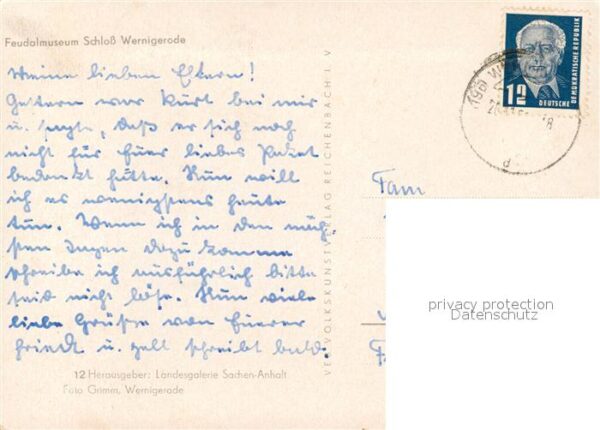 Feudalmuseum Schloß Wernigerode
Meine lieben Eltern!
Gestern war Kurt bei mir
u. sagte, daß er sich noch
nicht für Euer liebes Paket
bedankt hätte. Nun will
ich es wenigstens heute
tun. Wenn ich in den näch-
sten Tagen dazu komme
schreibe ich ausführlich bitte
seid nicht böse. Nun viele
liebe Grüße von Eurer
u. schreibt bald.
12 Herausgeber: Landesgalerie Sachen-Anhalt
Foto Grimm, Wernigerode
VEB VOLKSKUNSTVERLAG REICHENBACH I. V
12
DEUTSCHE
DEMOKRATISCHE REPUBLIK
d
Fam
privacy protection
Datenschutz